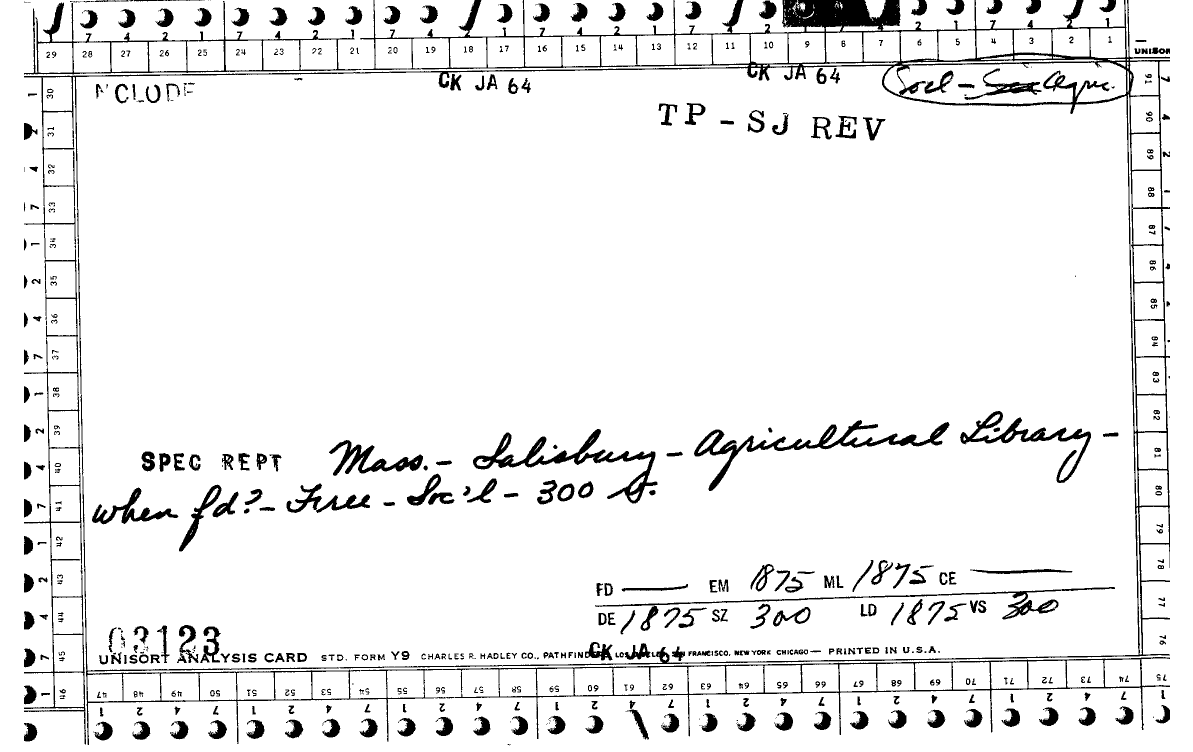 7 4 2 1 7 4 2 1 7 4 2 1 7 4 2 1 7 4 2 1
29 28 27 26 25 24 23 22 21 20 19 18 17 16 15 14 13 12 11 10 9 8 7 6 5 4 3 2 1 UNISOR
NCLUDE CK JA 64 CK JA 64 Soc'l - Agric.
TP - SJ REV
1 30
2 31
4 32
7 33
1 34
2 35
4 36
7 37
1 38
2 39
4 40
7 41
1 42
2 43
4 44
7 45
1 46
91
90
89
88
87
86
85
84
83
82
81
80
79
78
77
76
75
SPEC REPT Mass. - Salisbury - Agricultural Library -
when f'd? - Free - Soc'l - 300 v.
FD — EM 1875 ML 1875 CE —
DE 1875 SZ 300 LD 1875 VS 300
03123
CK JA 64
UNISORT ANALYSIS CARD STD. FORM Y9 CHARLES R. HADLEY CO., PATHFINDERS, LOS ANGELES, SAN FRANCISCO, NEW YORK CHICAGO — PRINTED IN U.S.A.
47 48 49 50 51 52 53 54 55 56 57 58 59 60 61 62 63 64 65 66 67 68 69 70 71 72 73 74
1 2 4 7 1 2 4 7 1 2 4 7 1 2 4 7 1 2 4 7 1 2 4 7 1 2 4 7